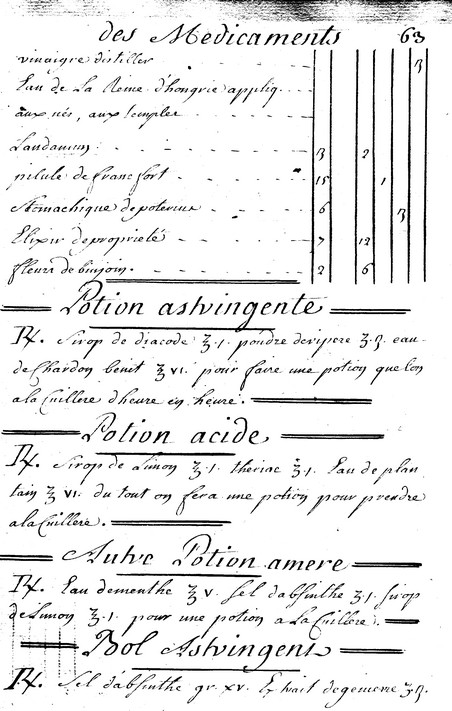 des Medicaments 63
vinaigre distiller ʒ
Eau de La Reine d'hongrie appliq
aux nés, aux temples
Laudanum ʒ 2
pilule de francfort 15 1
Stomachique de poterius 6 ʒ
Elixir de proprieté 7 12
fleurs de binjoin. 2 6
Potion astringente
℞. Sirop de diacode ℥.1. poudre de vipere ʒ.ß. eau
de Chardon benit ℥ VI. pour faire une potion que l'on
a la Cuillere d'heure en heure.
Potion acide
℞. Sirop de Limon ℥.1. theriac ʒ.1. Eau de plan
tain ℥ VI. du tout on fera une potion pour prendre
a la Cuillere.
Autre Potion amere
℞. Eau de menthe ℥ V. Sel d'absinthe ʒ.1. sirop
de Limon ℥.1. pour une potion a La Cuillere.
Bol Astringent
℞. Sel d'absinthe gr. XV. Extrait de genievre ʒ.ß.